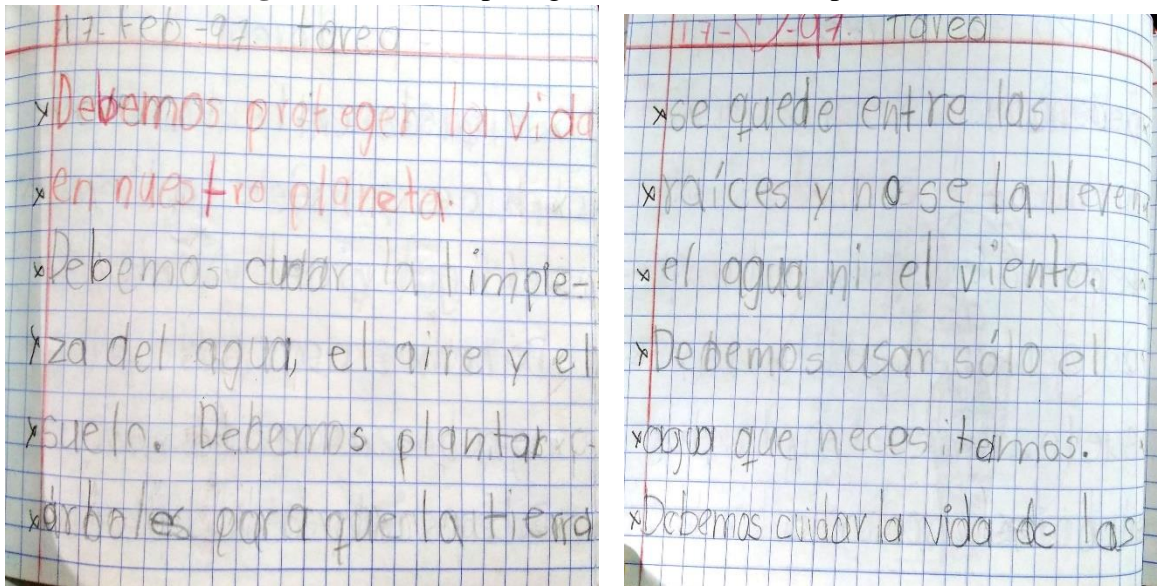 17-Feb-97. Tarea
Debemos proteger la vida
en nuestro planeta.
Debemos cuidar la limpie-
za del agua, el aire y el
suelo. Debemos plantar
árboles para que la tierra
17- -97. Tarea
se quede entre las
raíces y no se la lleven
el agua ni el viento.
Debemos usar sólo el
agua que necesitamos.
Debemos cuidar la vida de las